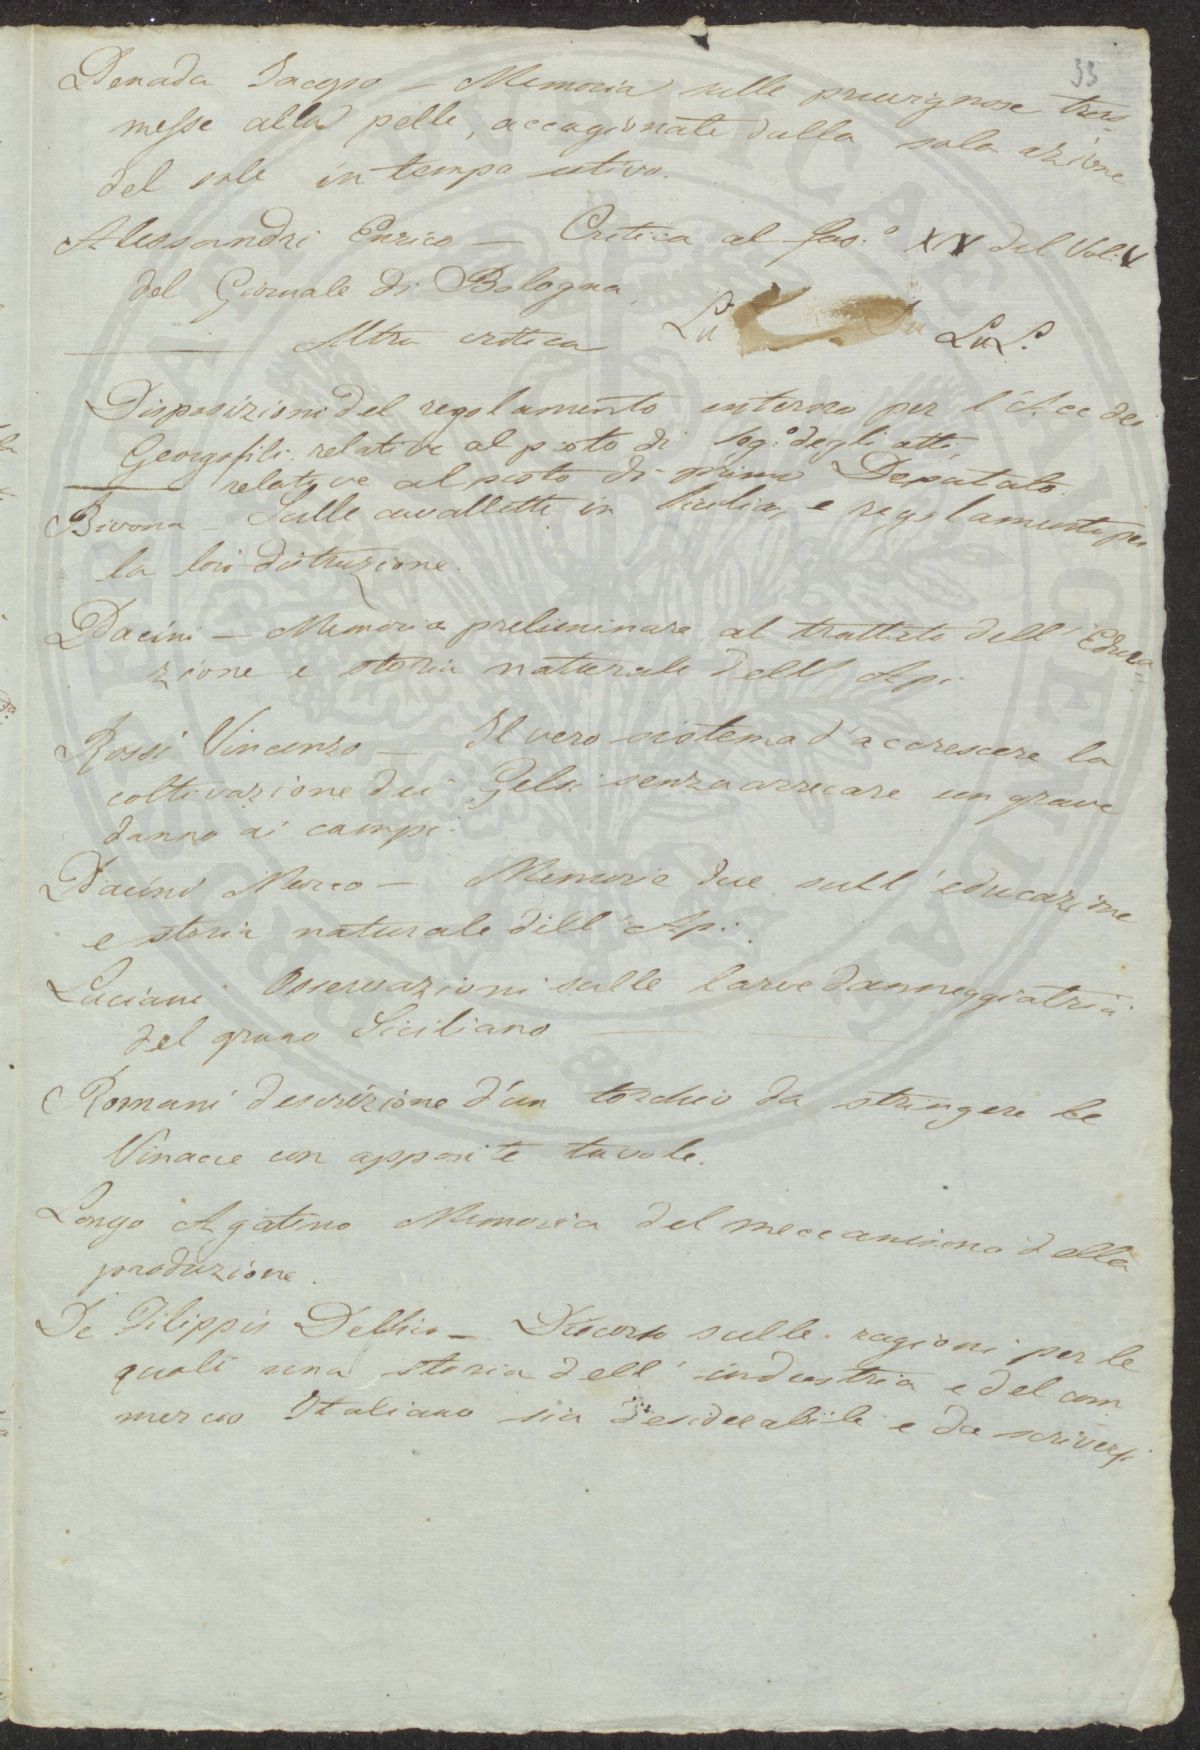 33
Penada Jacopo – Memoria sulle pruvignose tras
messe alla pelle, accagionate dalla sola azione
del sole in tempo estivo.
Alessandri Enrico – Critica al fas.° XV del Vol. V
del Giornale di Bologna
Altra critica Lu L.
Disposizioni del regolamento interno per l'Acc dei
Georgofili relative al posto di Seg.° degli atti,
relative al posto di primo Deputato
Bivona – Sulle cavallette in Sicilia, e regolamento per
la loro distruzione.
Dacini – Memoria preliminare al trattato dell' Educa
zione e storia naturale dell' Api
Rossi Vincenzo – Il vero sistema d'accrescere la
coltivazione dei Gelsi senza arrecare un grave
danno ai campi.
Dacini Marco – Memorie due sull' educazione
e storia naturale dell' Api.
Luciani Osservazioni sulle larve danneggiatrici
del grano Siciliano
Romani descrizione d'un torchio da stringere le
Vinacce con apposite tavole.
Longo Agatino Memoria del meccanismo della
produzione.
De Filippis Delfico – Discorso sulle ragioni per le
quali una storia dell' industria e del com
mercio Italiano sia desiderabile e da scriversi